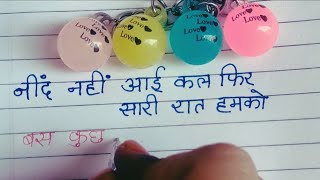 Love
Love
Love
Love
Love
Love
Love
Love
नींद नहीं आई कल फिर
सारी रात हमको
बस कुछ